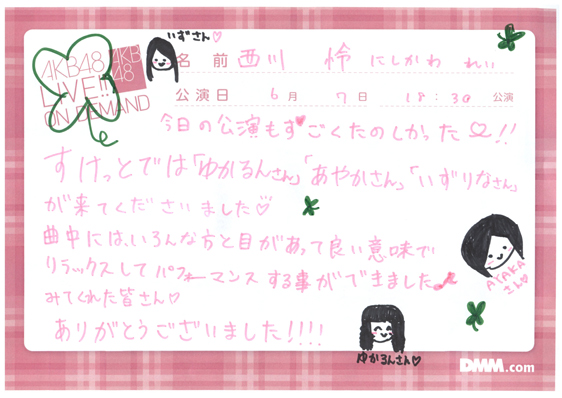 AKB48
LIVE!!
ON DEMAND
AKB
48
いずさん♡
名前 西川 怜 にしかわ れい
公演日 6月 7日 18:30 公演
今日の公演もすごくたのしかった♡!!
すけっとでは「ゆかるんさん」「あやかさん」「いずりなさん」
が来てくださいました♡
曲中には、いろんな方と目があって良い意味で
リラックスしてパフォーマンスする事ができました
みてくれた皆さん♡
ありがとうございました!!!!
AYAKA
さん♡
ゆかるんさん♡
DMM.com